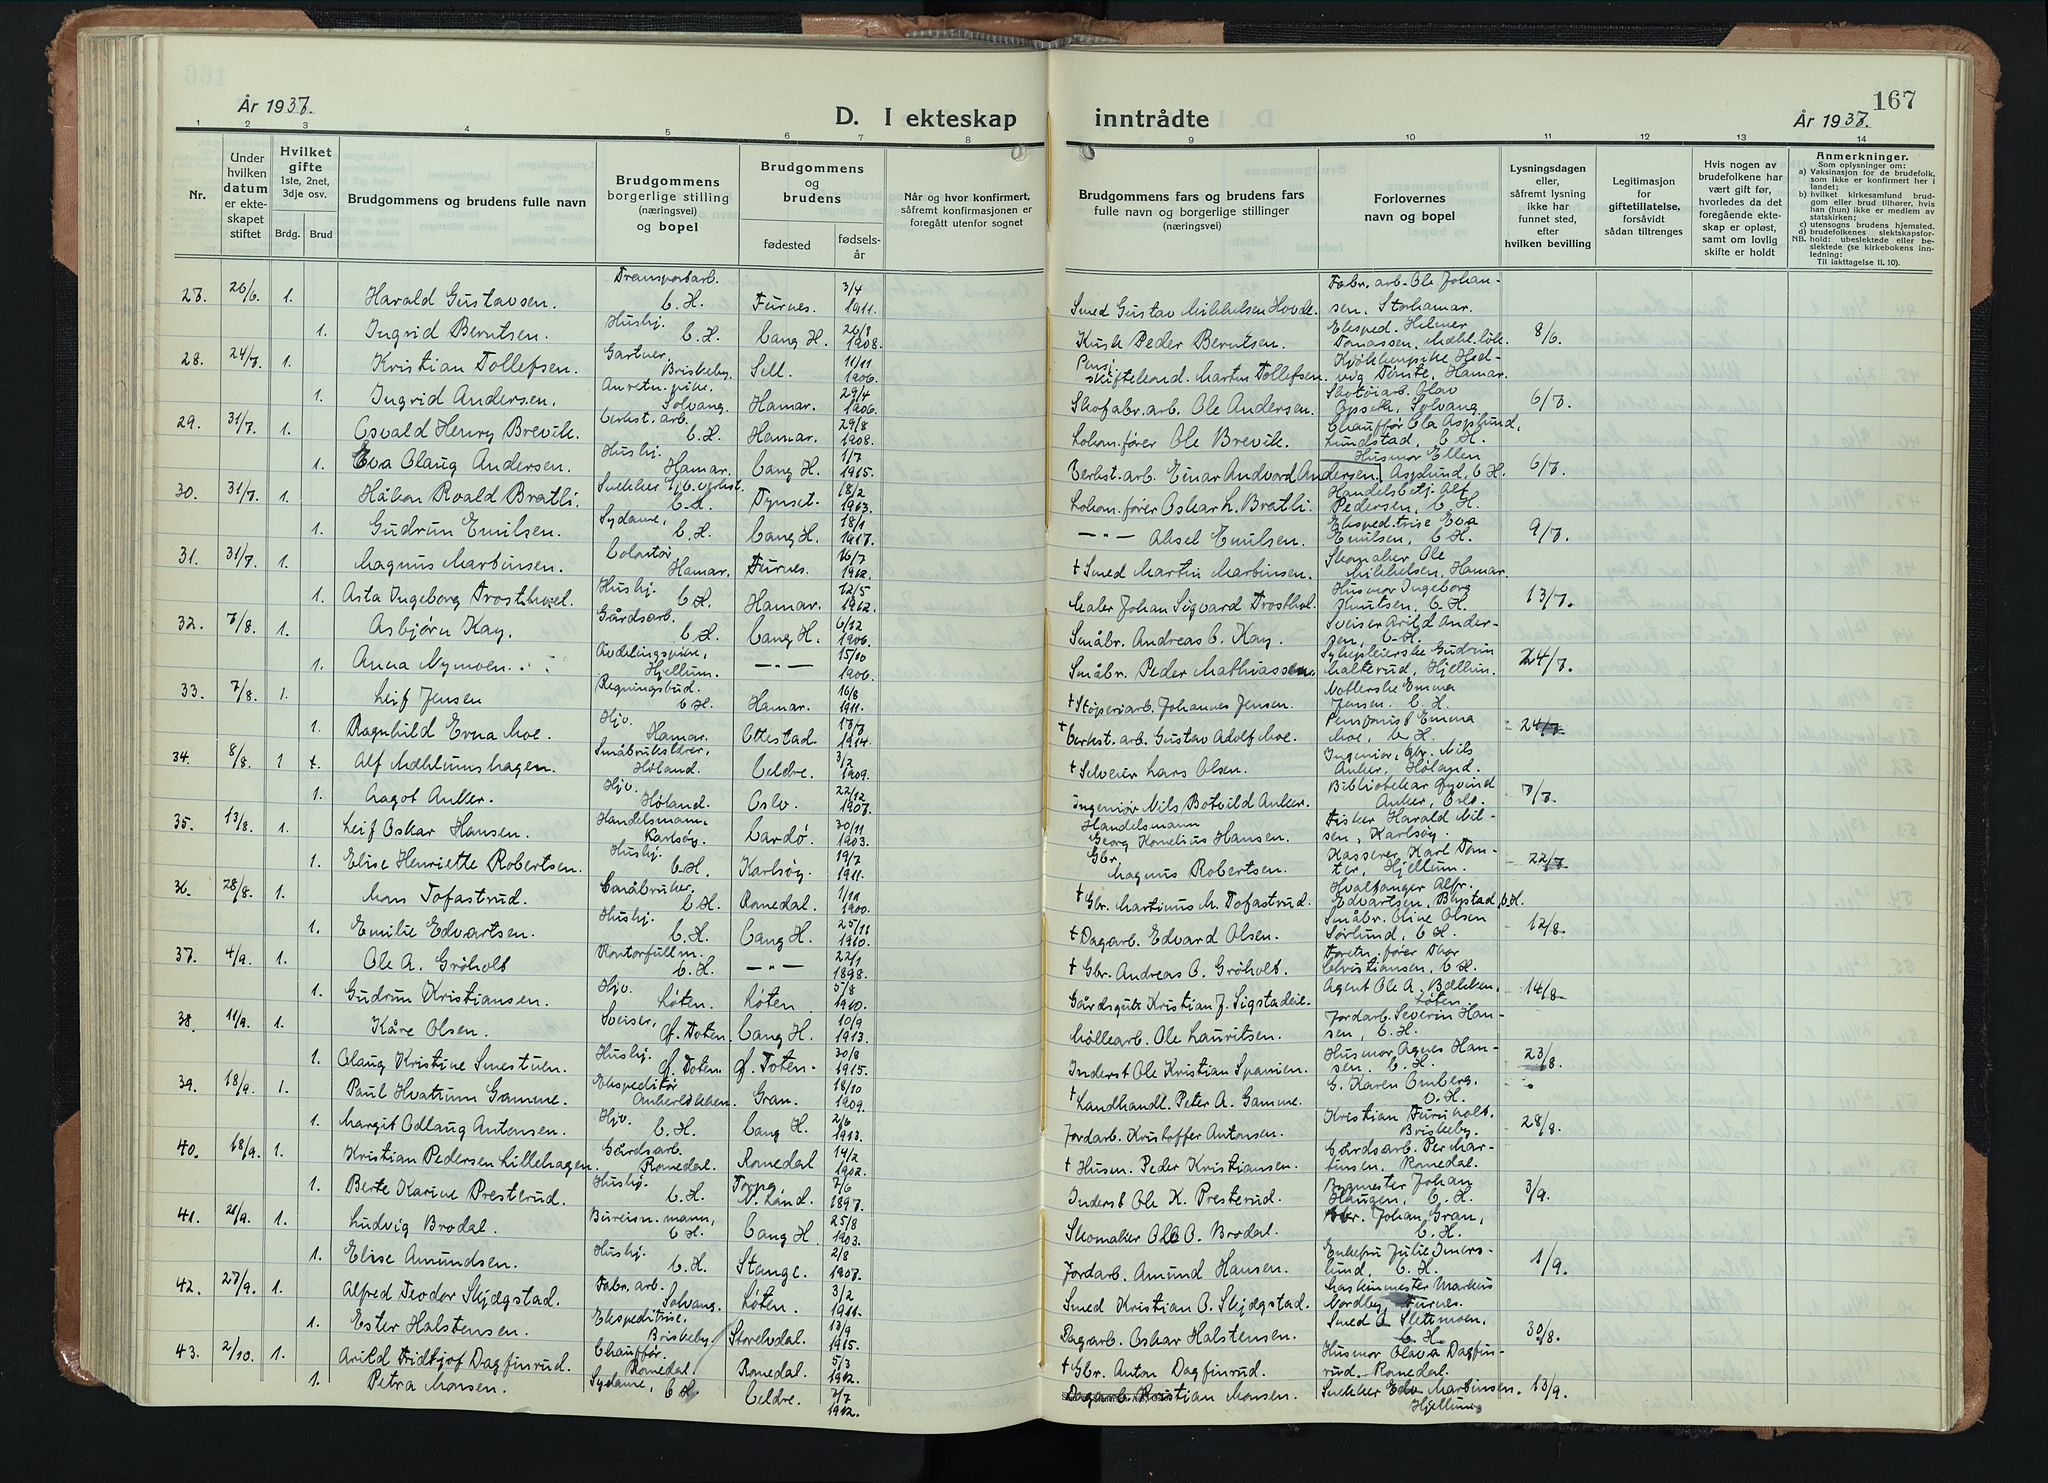 167
År 1937.
D. I ekteskap inntrådte
År 1937.
1 2 3 4 5 6 7 8 9 10 11 12 13 14
Nr.
Under hvilken datum er ekteskapet stiftet
Hvilket gifte
1ste, 2net, 3dje osv.
Brdg. Brud
Brudgommens og brudens fulle navn
Brudgommens borgerlige stilling (næringsvei) og bopel
Brudgommens og brudens
fødested
fødsels-år
Når og hvor konfirmert, såfremt konfirmasjonen er foregått utenfor sognet
Brudgommens fars og brudens fars fulle navn og borgerlige stillinger (næringsvei)
Forlovernes navn og bopel
Lysningsdagen eller, såfremt lysning ikke har funnet sted, efter hvilken bevilling
Legitimasjon for giftetillatelse, forsåvidt sådan tiltrenges
Hvis nogen av brudefolkene har vært gift før, hvorledes da det foregående ekteskap er opløst, samt om lovlig skifte er holdt
Anmerkninger.
Som oplysninger om:
a) Vaksinasjon for de brudefolk, som ikke er konfirmert her i landet;
b) hvilket kirkesamfund brudgom eller brud tilhører, hvis han (hun) ikke er medlem av statskirken;
c) utensogns brudens hjemsted.
d) brudefolkenes slektskapsforhold: ubeslektede eller beslektede (se kirkebokens innledning:
NB.
Til iakttagelse II. 10).
27. 26/6 1. Harald Gustavsen. Transportarb. V. H. Furnes. 3/4 1911. Smed Gustav Mikkelsen Hovde. Fabr. arb. Ole Johansen, Storhamar.
1. Ingrid Berntsen. Husbj. V. H. Vang H. 26/8 1908. Kusk Peder Berntsen. Eksped. Helmer Tomassen, 8/6
28. 24/7 1. Kristian Tollefsen. Gartner, Briskeby. Sell. 11/11 1906. Pens. Martin Tollefsen. Hamar.
1. Ingrid Andersen. Solvang. Hamar. 29/4 1906. Skofabr. arb. Ole Andersen. Skotøiarb. Olav Opseth, Solvang 6/7.
29. 31/7. 1. Osvald Henry Brevik. Verkst. arb. V. H. Hamar. 29/8 1908. Lokom. fører Ole Brevik. Chauffør Ola Asplund, Lundstad, V. H.
1. Eva Olaug Andersen. Husbj. Hamar. Vang H. 1/7 1915. Verkst. arb. Einar Andvord Andersen. Husmor Ellen Asplund, V. H. 6/7.
30. 31/7. 1. Håkon Roald Bratli. Snekker V. H. Tynset. 18/2 1913. Lokom. fører Oskar L. Bratli. Handelsbetj. Alf Pedersen, V. H.
1. Gudrun Emilsen. Sydame, V. H. Vang H. 18/1 1917. —"— Aksel Emilsen. Ekspeditrise Eva Emilsen, V. H. 9/7.
31. 31/7. 1. Magnus Martinsen. Hamar. Furnes. 16/7 1912. † Smed Martin Martinsen. Skomaker Ole Mikkelsen, Hamar.
1. Asta Ingeborg Trosthoel. Husbj. V. H. Hamar. 12/5 1912. Maler Johan Sigvard Trosthol. Husmor Ingeborg Knutsen, V. H. 13/7.
32. 7/8. 1. Asbjørn Kay. Gårdsarb. V. H. Vang H. 6/12 1906. Småbr. Andreas O. Kay. Sveiser Arild Andersen, V. H.
1. Anna Nymoen. Avdelingspike, Hjellum. —"— 15/10 1906. Småbr. Peder Mathiassen. Sykepleierske Gudrun Malterud, Hjellum. 24/7.
33. 7/8. 1. Leif Jensen Regningsbud. V. H. Hamar. 16/8 1911. † Støperiarb. Johannes Jensen. Emma Jensen, V. H.
1. Ragnhild Erna Moe. Hjv. Hamar. Ottestad. 1914. † Verkst. arb. Gustav Adolf Moe. Pensjonist Emma Moe, V. H. 24/7
34. 8/8. 1 Alf Mæhlumshagen. Småbrukslærer, Høland. Veldre. 3/2 1909. † Selveier Lars Olsen. Ingeniør, Gbr. Nils Anker, Høland.
1. Aagot Anker. Hjv. Høland. Oslo. 22/12 1907. Ingeniør Nils Botvild Anker. Bibliotekar Øyvind Anker, Oslo. 7/7.
35. 13/8. 1. Leif Oskar Hansen. Handelsmann, Karlsøy. Vardø. 30/11 1903. Handelsmann Georg Kornelius Hansen. Fisker Harald Nilsen, Karlsøy.
1. Elise Henriette Robertsen. Husbj. V. H. Karlsøy. 19/7 1911. Gbr. Magnus Robertsen. Kasserer Karl Hjellum. 22/7
36. 28/8. 1. Mons Tofastrud. Småbruker, V. H. Romedal. 1900. † Gbr. Martinus M. Tofastrud. Hvalfanger Alfr. Edvartsen, V. H.
1. Emilie Edvartsen. Husbj. V. H. Vang H. 25/11 1910. † Dagarb. Edvard Olsen. Småbr. Oline Olsen Sørlund, V. H. 12/8.
37. 4/9. 1. Ole A. Grøholt Kontorfullm. V. H. —"— 22/1 1898. † Gbr. Andreas O. Grøholt. Thor Christiansen, V. H.
1. Gudrun Kristiansen. Hjv. Løten. Løten 5/8 1910. Gårdsgutt Kristian J. Sigstadeie. Agent Ole A. Løten. 14/8.
38. 11/9. 1. Kåre Olsen. Sveiser, Ø. Toten. Vang H. 10/9 1913. Møllearb. Ole Lauritsen. Jordarb. Severin Hansen, V. H.
1. Olaug Kristine Smestuen. Husbj. Ø. Toten. Ø. Toten. 30/8 1915. Inderst Ole Kristian Spanien. Husmor Agnes Hansen. V. H. 23/8.
39. 18/9. 1. Paul Hvattum Gamme. Ekspeditør Gran. 18/10 1909. † Landhandl. Peter A. Gamme. G. Karen Omberg. V. H.
1. Margit Odlaug Antonsen. Hjv. V. H. Vang H. 2/6 1913. Jordarb. Kristoffer Antonsen. Kristian Furuholt. Briskeby. 28/8.
40. 18/9. 1. Kristian Pedersen Lillehagen. Gårdsarb. Romedal. Romedal 14/2 1902. † Husm. Peder Kristiansen. Gårdsarb. Per Martinsen, Romedal.
1. Berte Karine Presterud. Husbj. V. H. Torpa N. Land. 7/6 1897. Inderst Ole K. Presterud. Bygmester Johan Haugen, V. H. 3/9.
41. 21/9. 1. Ludvig Brodal. Bureisn. mann, V. H. Vang H 25/8 1903. Skomaker Ole O. Brodal. Gbr. Johan Gran, V. H.
1. Elise Amundsen. Husbj. V. H. Stange. 2/8 1907. Jordarb. Amund Hansen. Enkefru Julie Imerslund, V. H. 1/9.
42. 27/9. 1. Alfred Teodor Skjægstad. Fabr. arb. Solvang. Løten. 3/2 1911. Smed Kristian O. Skjægstad. Maskinmester Markus Nordby, Furnes.
1. Ester Halstensen. Ekspeditrise, Briskeby. Storelvdal. 13/9 1915. Dagarb. Oskar Halstensen. Smed A. Slettmoen, V. H. 30/8.
43. 2/10. 1. Arild Fridtjof Dagfinrud. Chauffør. Romedal. Romedal. 5/3 1912. † Gbr. Anton Dagfinrud. Husmor Olava Dagfinrud. Romedal.
1. Petra Monsen. Sydame, V. H. Veldre. 2/7 1912. Dagarb. Kristian Monsen. Snekker Edv. Martinsen. Hjellum. 13/9.